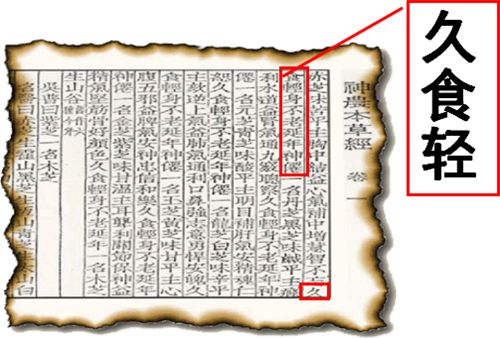 久食轻
神農本草經 卷一
赤芝味苦平主胸中結益心氣補中增慧智不忘久
食輕身不老延年神僊一名丹芝黑芝味鹹平主癃
利水道益腎氣通九竅聰察久食輕身不老延年神
僊一名元芝青芝味酸平主明目補肝氣安精魂仁
恕久食輕身不老延年神僊一名龍芝白芝味辛平
主欬逆上氣益肺氣通利口鼻強志意勇悍安魄久
食輕身不老延年神僊一名玉芝黃芝味甘平主心
腹五邪益脾氣安神忠信和樂久食輕身不老延年
神僊一名金芝紫芝味甘溫主耳聾利關節保神益
精氣堅筋骨好顏色久食輕身不老延年一名木芝
生山谷
吳普曰紫芝一名木芝
名醫曰赤芝生霍山黑芝生常山青芝生泰山白